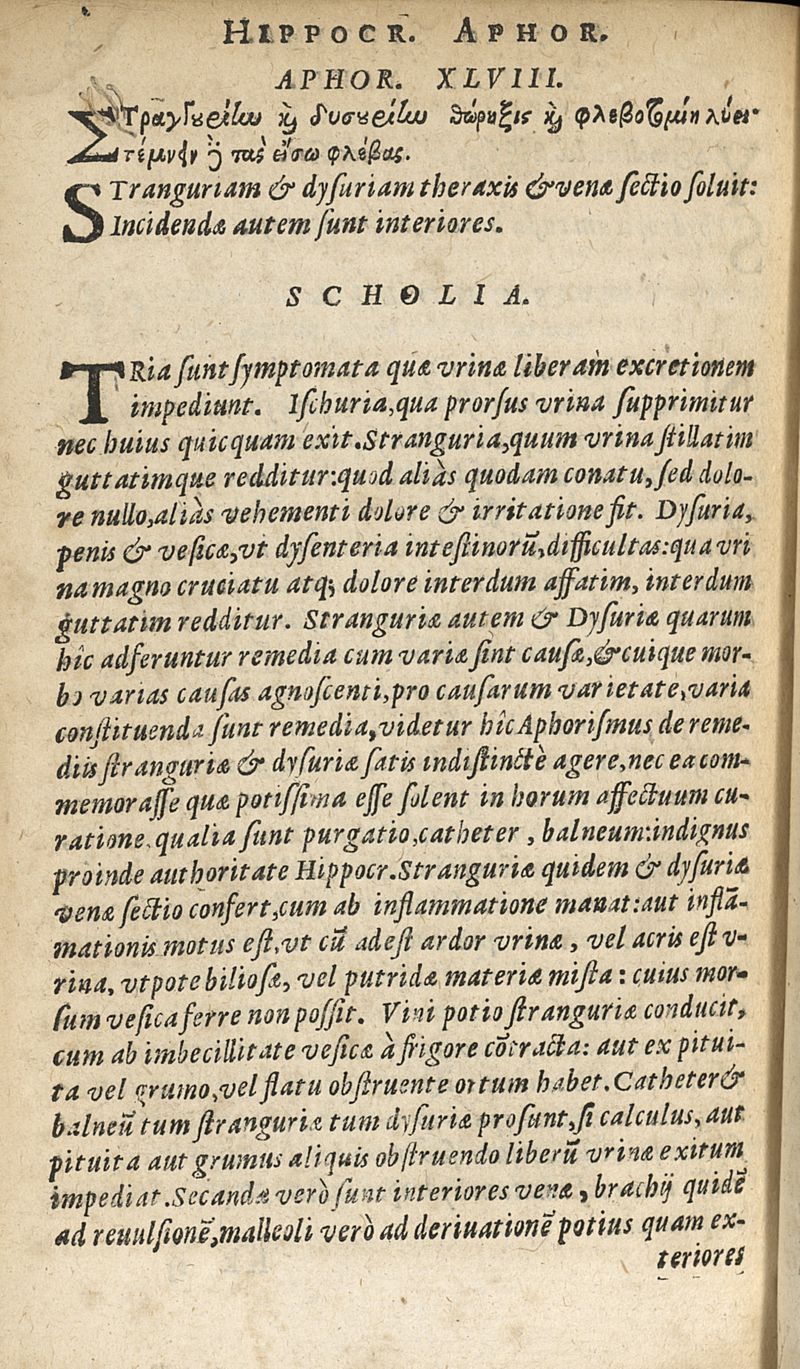 HIPPOCR. APHOR.
APHOR. XLVIII.
ΣΤραγγουρίην καὶ δυσουρίην θώρηξις καὶ φλεβοτομίη λύει·
τέμνειν δὲ τὰς εἴσω φλέβας.
STranguriam & dyſuriam theraxis & venæ ſectio ſoluit:
Incidendæ autem ſunt interiores.
SCHOLIA.
TRia ſunt ſymptomata quæ vrinæ liberam excretionem
impediunt. Iſchuria, qua prorſus vrina ſupprimitur
nec huius quicquam exit. Stranguria, quum vrina ſtillatim
guttatimque redditur: quod aliàs quodam conatu, ſed dolo-
re nullo, aliàs vehementi dolore & irritatione fit. Dyſuria,
penis & veſicæ, vt dyſenteria inteſtinorũ, difficultas: qua vri
na magno cruciatu atq; dolore interdum affatim, interdum
guttatim redditur. Stranguriæ autem & Dyſuriæ quarum
hîc adferuntur remedia cum variæ ſint cauſæ, & cuique mor-
bo varias cauſas agnoſcenti, pro cauſarum varietate, varia
conſtituenda ſunt remedia, videtur hîc Aphoriſmus de reme-
diis ſtranguriæ & dyſuriæ ſatis indiſtinctè agere, nec ea com-
memoraſſe quæ potiſſima eſſe ſolent in horum affectuum cu-
ratione, qualia ſunt purgatio, catheter, balneum: indignus
proinde authoritate Hippocr. Stranguriæ quidem & dyſuriæ
venæ ſectio confert, cum ab inflammatione manat: aut inflã-
mationis motus eſt, vt cũ adeſt ardor vrinæ, vel acris eſt v-
rina, vtpote bilioſæ, vel putridæ materiæ miſta: cuius mor-
ſum veſica ferre non poſſit. Vini potio ſtranguriæ conducit,
cum ab imbecillitate veſicæ à frigore cõtracta: aut ex pitui-
ta vel grumo, vel flatu obſtruente ortum habet. Catheter &
balneũ tum ſtranguriæ tum dyſuriæ proſunt, ſi calculus, aut
pituita aut grumus aliquis obſtruendo liberũ vrinæ exitum
impediat. Secandæ verò ſunt interiores venæ, brachij quidẽ
ad reuulſionẽ, malleoli verò ad deriuationẽ potius quam ex-
teriores